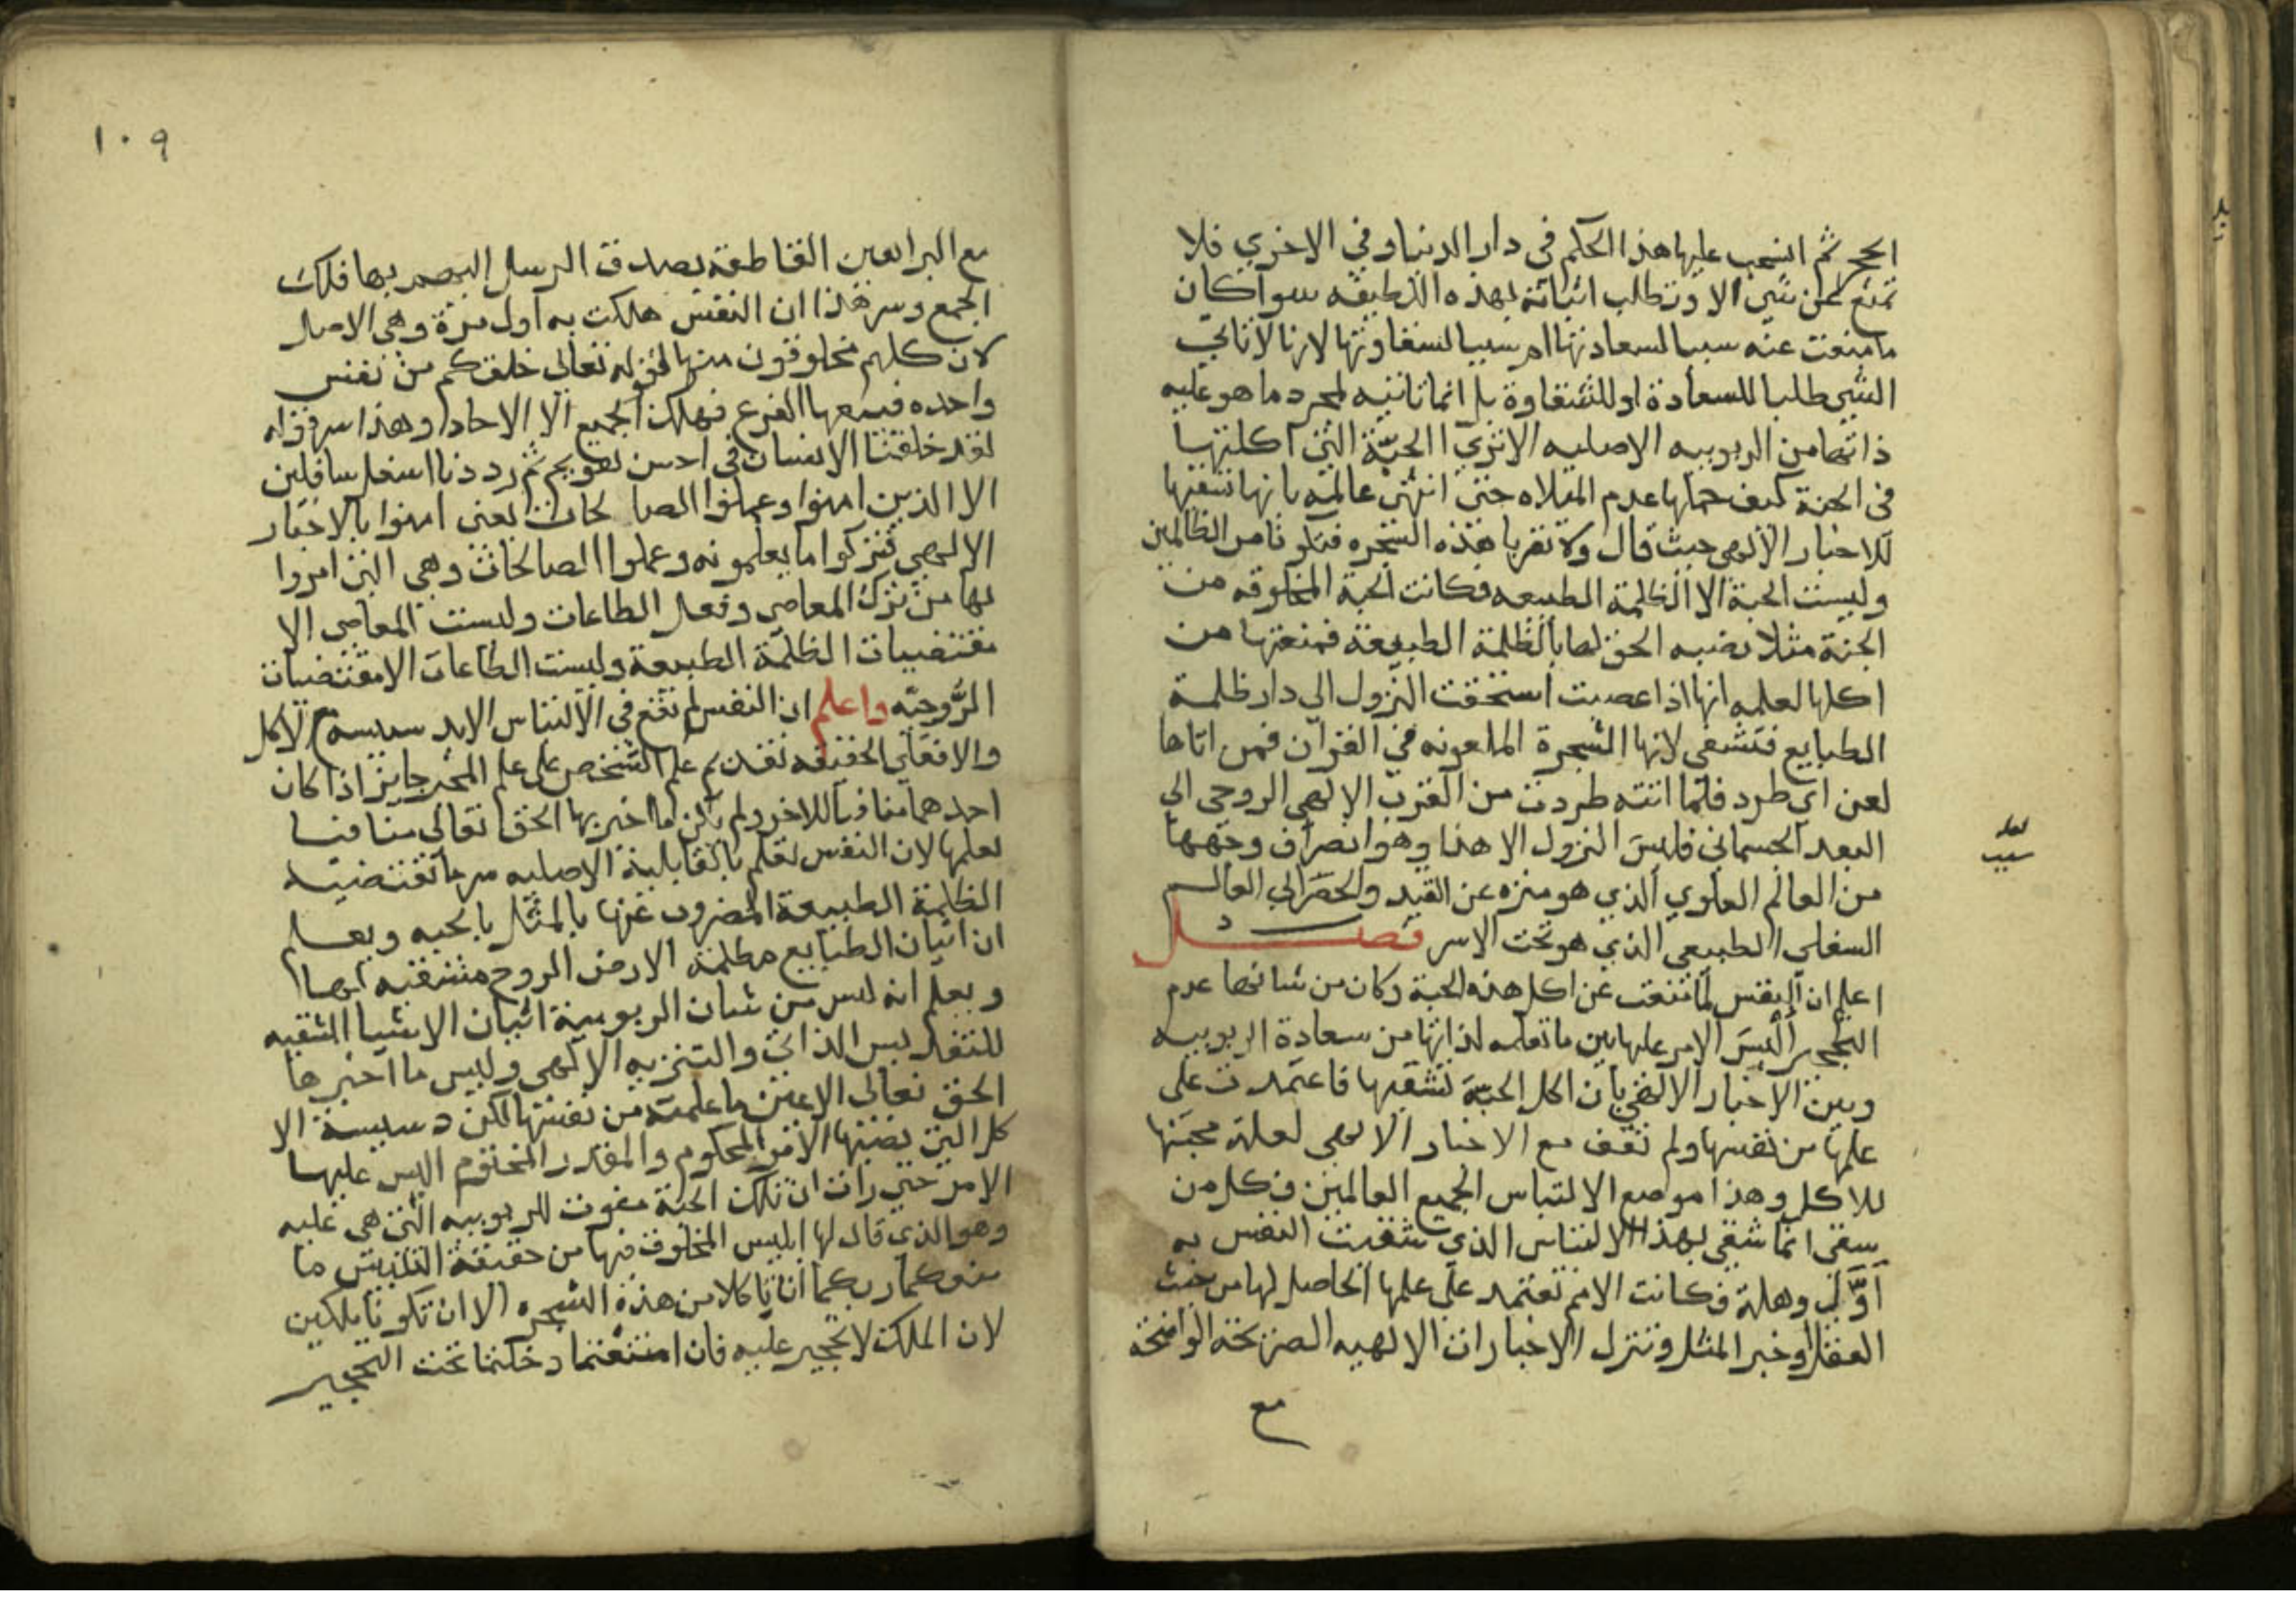 الحجر ثم انسحب عليها هذا الحكم في دار الدنيا وفي الاخري فلا
تمنع من شي الا وتطلب اتيانه بهذه اللطيفه سوا كان
ما منعت عنه سببا لسعادتها ام سببا لشقاوتها لانها لا تاتي
الشي طلبا للسعادة او للشقاوة بل انما تاتيه لمجرد ما هو عليه
ذاتها من الربوبيه الاصليه الا تري الحبّة التي اكلتها
في الجنة كيف حملها عدم المبالاه حتى اتتها عالمة بانها تشقيها
للاخبار الالهي حيث قال ولا تقربا هذه الشجره فتكونا من الظالمين
وليست الحبة الا الظلمة الطبيعه فكانت الحبة المخلوقه من
الجنة مثلا نصبه الحق لها بالظلمة الطبيعة فمنعها من
اكلها لعلمه انها اذا عصيت استحقت النزول الي دار ظلمة
الطبايع فتشقى لانها الشجرة الملعونه في القران فمن اتاها
لعن اي طرد فلما اتته طردت من القرب الالهي الروحي الي
البعد الجسماني فليس النزول الا هذا وهو انصراف وجهها
من العالم العلوي الذي هو منزه عن القيد والحصر الي العالم
السفلي الطبيعي الذي هو تحت الاسر فصل
اعلم ان النفس لما منعت عن اكل هذه الحبة وكان من شانها عدم
التحجير التبس الامر عليها بين ما تعلمه لذاتها من سعادة الربوبيه
وبين الاخبار الالهي بان اكل الحبّة تشقيها فاعتمدت على
علمها من نفسها ولم تقف مع الاخبار الالهي لعلة محبتها
للاكل وهذا موضع الالتباس لجميع العالمين فكل من
شقى انما شقى بهذا الالتباس الذي شقيت النفس به
اوّل وهلة فكانت الامم تعتمد على علمها الحاصل لها من حيث
العقل او خبر المثل وتترك الاخبارات الالهيه الصريحة الواضحة
مع
لعله
سبب
١٠٩
مع البراهين القاطعة بصدق الرسل اليهم بها فهلك
الجمع وسر هذا ان النفس هلكت به اول مرة وهي الاصل
لان كلهم مخلوقون منها لقوله تعالى خلقكم من نفس
واحده فتبعها الفرع فهلك الجميع الا الاحاد وهذا سر قوله
لقد خلقنا الانسان في احسن تقويم ثم رددناه اسفل سافلين
الا الذين امنوا وعملوا الصالحات يعني امنوا بالاخبار
الالهي فتركوا ما يعلمونه وعملوا الصالحات وهي التي امروا
بها من ترك المعاصي وفعل الطاعات وليست المعاصي الا
مقتضيات الظلمة الطبيعة وليست الطاعات الا مقتضيات
الرُّوحيّه واعلم ان النفس لم تقع في الالتباس الا بدسيسة الاكل
والا فعلى الحقيقه تقديم علم الشخص على علم المخبر جايز اذا كان
احدهما منافيا للاخر ولم يكن ما اخبر بها الحق تعالى منافيا
لعلمها لان النفس تعلم بالقابلية الاصليه سر ما تقتضيه
الظلمة الطبيعة المضروب عنها بالمثل بالحبه وتعلم
ان اتيان الطبايع مظلمة الارض الروح مشقيه لها
وبعلم انه ليس من شان الربوبية اتيان الاشيا المشقيه
للتقديس الذاتي والتنزيه الالهي وليس ما اخبرها
الحق تعالى الا عين ما علمته من نفسها لكن دسيسة الا
كل التي نصبها الامر المحكوم والمقدر المختوم التبس عليها
الامر حتى رات ان تلك الحبّة مفوت للربوبيه التي هي عليه
وهو الذي قال لها ابليس المخلوق فيها من حقيقة التلبيس ما
منعكما ربكما ان تاكلا من هذه الشجره الا ان تكونا ملكين
لان الملك لا تحجير عليه فان امتنعتما دخلتما تحت التحجير